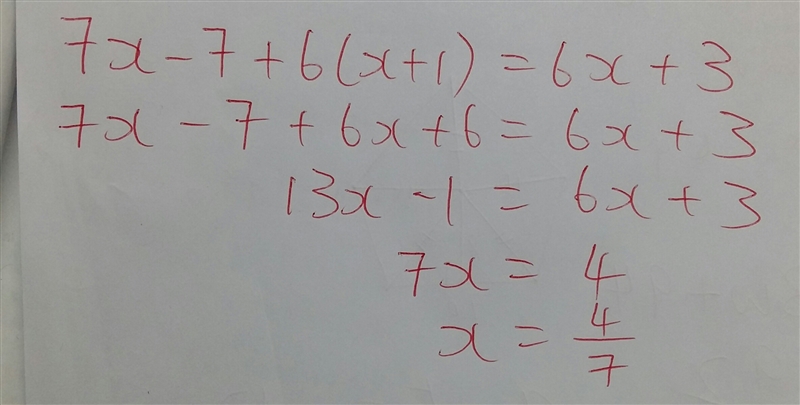 7x - 7 + 6(x+1) = 6x + 3
7x - 7 + 6x + 6 = 6x + 3
13x - 1 = 6x + 3
7x = 4
x = 4/7